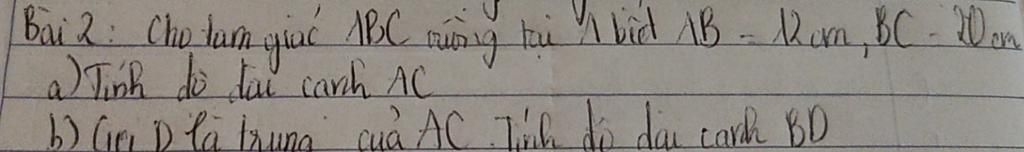 Bài 2: Cho tam giác ABC vuông tại A biết AB = 12 cm, BC = 20 cm
a) Tính độ dài cạnh AC
b) Gọi D là trung cuả AC. Tính độ dài cạnh BD